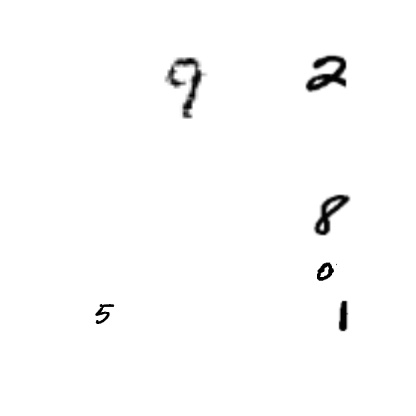 9 2
8
0
5 1